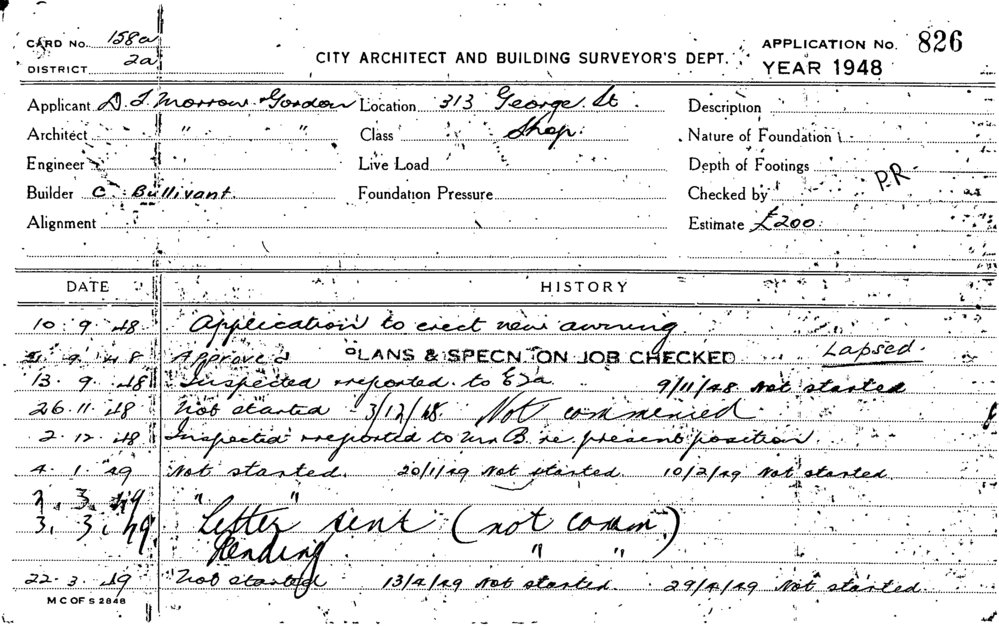 CARD No. 158a
DISTRICT 2a
CITY ARCHITECT AND BUILDING SURVEYOR'S DEPT.
APPLICATION No. 826
YEAR 1948
Applicant D. J. Morrow-Gordon Location 313 George St Description
Architect " " Class Shop. Nature of Foundation
Engineer Live Load Depth of Footings
Builder C. Bullivant. Foundation Pressure Checked by P.R
Alignment Estimate £200.
DATE HISTORY
10. 9. 48 Application to erect new awning
9. 48 Approved PLANS & SPECN. ON JOB CHECKED Lapsed.
13. 9. 48 Inspected & reported to 9/11/48 Not started
26. 11. 48 Not started 3/12/48. Not commenced
2. 12. 48 Inspected & reported to Mr B. re. present position.
4. 1. 49 Not started. 20/1/49 Not started. 10/2/49 Not started.
2. 3. 49 " "
3. 3. 49. Letter sent (not comm.)
Pending " "
22. 3. 49 Not started 13/4/49 Not started. 29/4/49 Not started.
M C OF S 2848